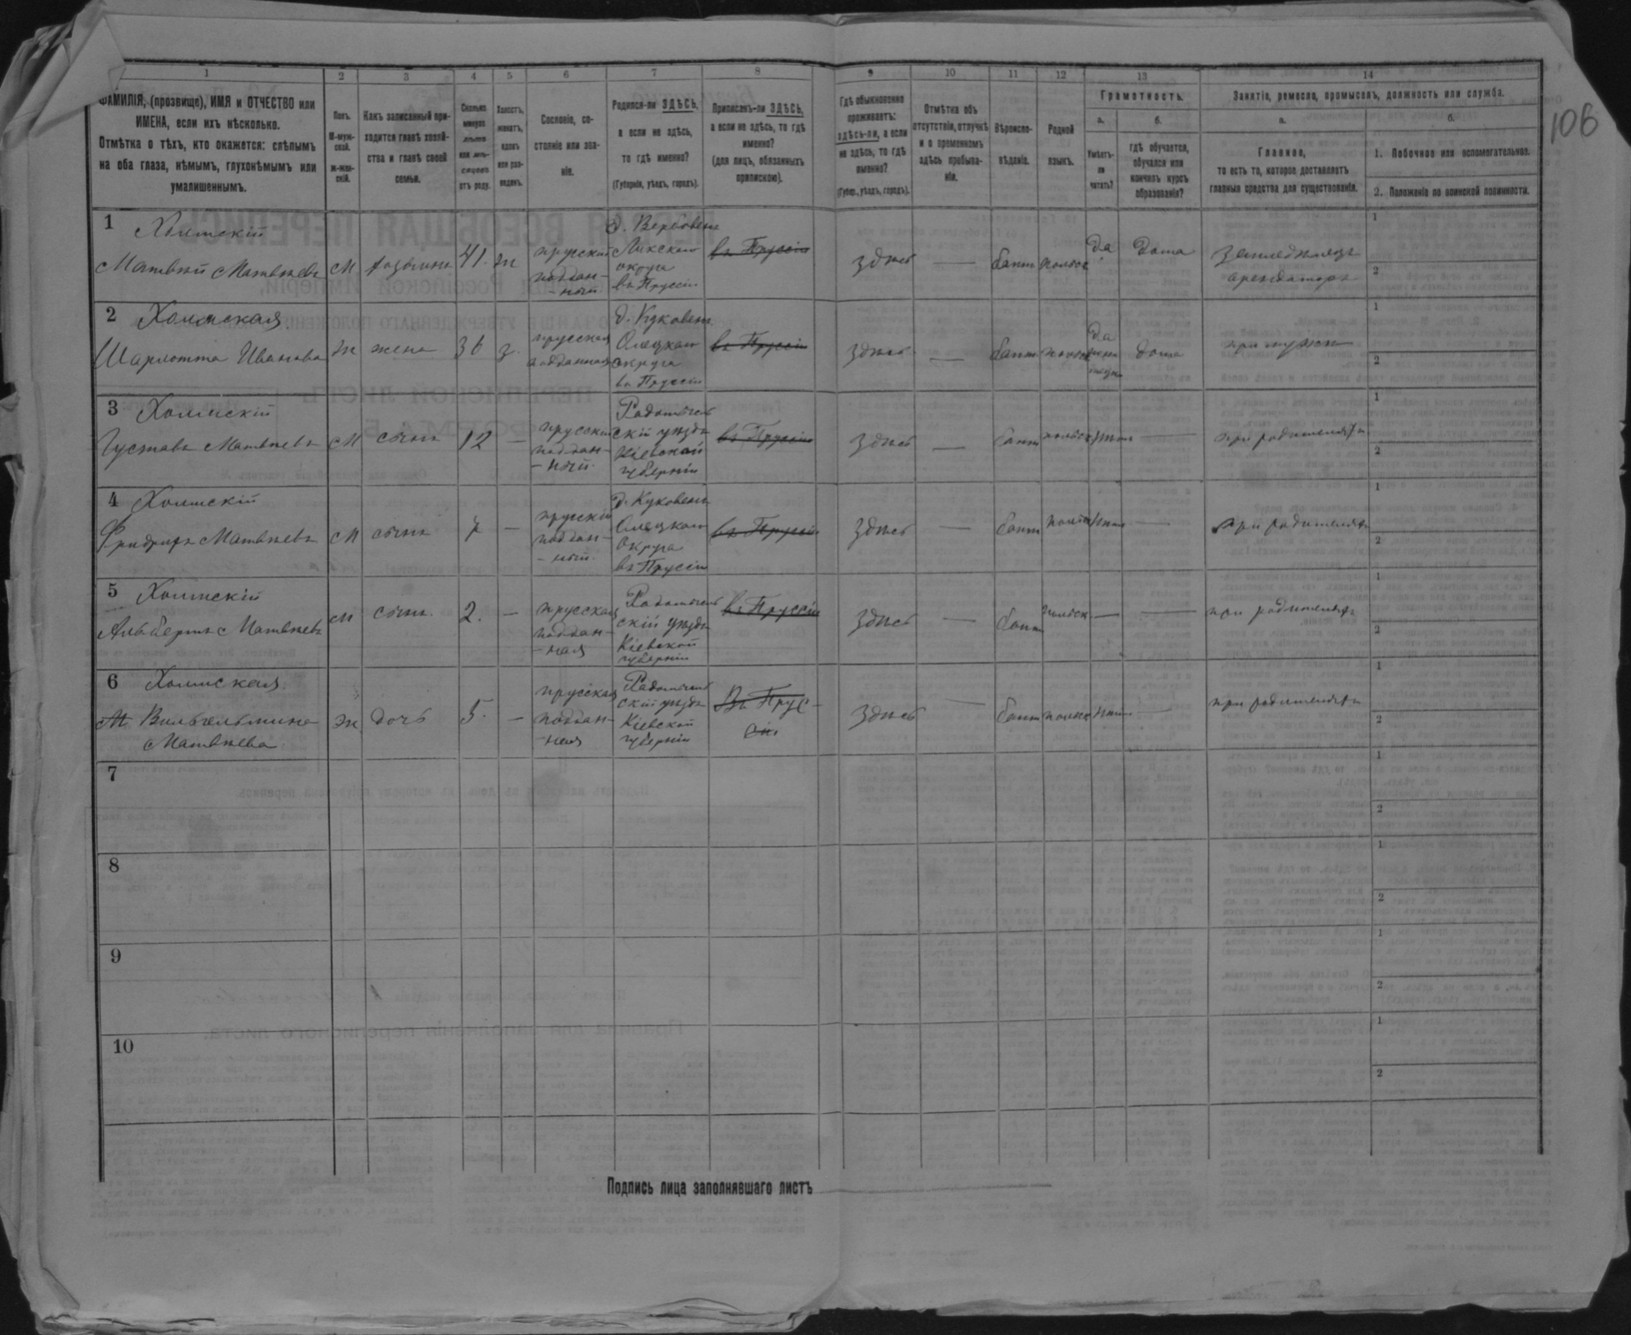 106
1 2 3 4 5 6 7 8 9 10 11 12 13 14
ФАМИЛІЯ, (прозвище), ИМЯ и ОТЧЕСТВО или
ИМЕНА, если ихъ нѣсколько.
Отмѣтка о тѣхъ, кто окажется: слѣпымъ
на оба глаза, нѣмымъ, глухонѣмымъ или
умалишеннымъ.
Полъ.
М-муж-
ской.
Ж-жен-
скій.
Какъ записанный при-
ходится главѣ хозяй-
ства и главѣ своей
семьи.
Сколько
минуло
лѣтъ
или мѣ-
сяцевъ
отъ роду.
Холостъ,
женатъ,
вдовъ
или раз-
веденъ.
Сословіе, со-
стояніе или зва-
ніе.
Родился-ли ЗДѢСЬ,
а если не здѣсь,
то гдѣ именно?
(Губернія, уѣздъ, городъ).
Приписанъ-ли ЗДѢСЬ,
а если не здѣсь, то гдѣ
именно?
(для лицъ, обязанныхъ
припискою).
Гдѣ обыкновенно
проживаетъ:
здѣсь-ли, а если
не здѣсь, то гдѣ
именно?
(Губер., уѣздъ, городъ).
Отмѣтка объ
отсутствіи, отлучкѣ
и о временномъ
здѣсь пребыва-
ніи.
Вѣроиспо-
вѣданіе.
Родной
языкъ.
Грамотность.
а.
Умѣетъ-
ли
читать?
б.
гдѣ обучается,
обучался или
кончилъ курсъ
образованія?
Занятіе, ремесло, промыселъ, должность или служба.
а.
Главное,
то есть то, которое доставляетъ
главныя средства для существованія.
б.
1. Побочное или вспомогательное.
2. Положеніе по воинской повинности.
1 Холмскій
Матвѣй Матвѣевъ М хозяинъ 41. ж
прускій
поддан-
-ный
Ликскаго
округа
въ Пруссіи
въ Пруссіи
здѣсь — бапт польск да дома
земледѣлецъ
арендаторъ
1
2
2 Холмская
Шарлотта Иванова ж жена 36 з.
прусская
подданная
д. Куковенъ
Олецкаго
округа
въ Пруссіи
въ Пруссіи
здѣсь — бапт польск да дома
при мужѣ
1
2
3 Холмскій
Густавъ Матвѣевъ М сынъ 12 —
прусскій
поддан-
-ный
Радомысль
скій уѣздъ
Кіевской
губерніи
въ Пруссіи
здѣсь — бапт польск нѣтъ —
при родителяхъ
1
2
4 Холмскій
Фридрихъ Матвѣевъ М сынъ 7 —
прусскій
поддан-
-ный
д. Куковенъ
Олецкаго
округа
въ Пруссіи
въ Пруссіи
здѣсь — бапт польск нѣтъ —
при родителяхъ
1
2
5 Холмскій
Альбертъ Матвѣевъ М сынъ. 2. —
прусская
поддан-
-ная
Радомысль
скій уѣздъ
Кіевской
губерніи
въ Пруссіи
здѣсь — бапт польск — —
при родителяхъ
1
2
6 Холмская
М Вильгельмина
Матвѣева
ж дочь 5. —
прусская
поддан-
-ная
Радомысль
скій уѣздъ
Кіевской
губерніи
Въ Прус-
сіи
здѣсь — бапт польск нѣтъ —
при родителяхъ
1
2
7
1
2
8
1
2
9
1
2
10
1
2
Подпись лица заполнявшаго листъ